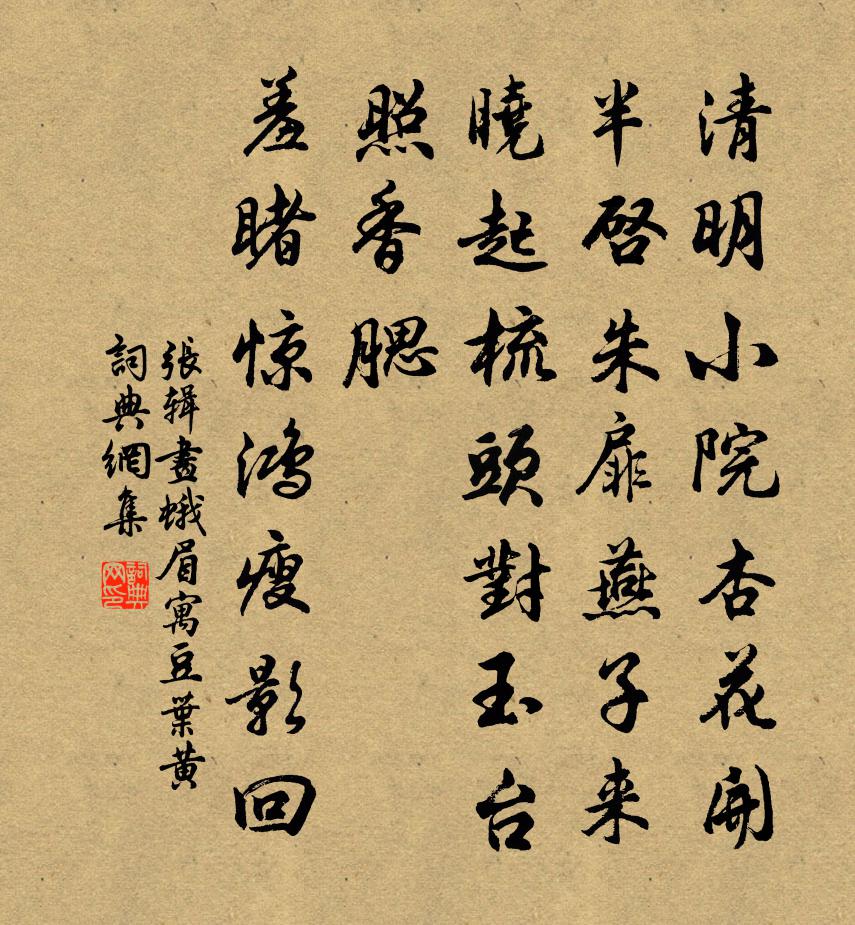 清明小院杏花開
半啓朱扉燕子来
曉起梳頭對玉台
照香腮
羞睹惊鸿瘦影回
張辑畫蛾眉寓豆葉黄
詞典網集
詞典网印